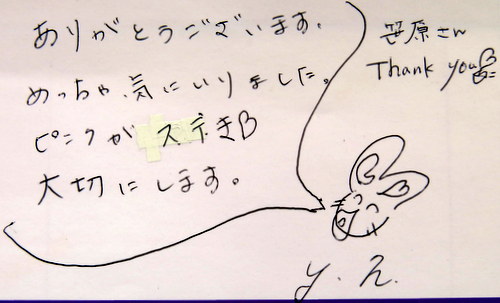 ありがとうございます。
めっちゃ気にいりました。
ピンクがステき
大切にします。
笹原さん
Thank you
y.え.